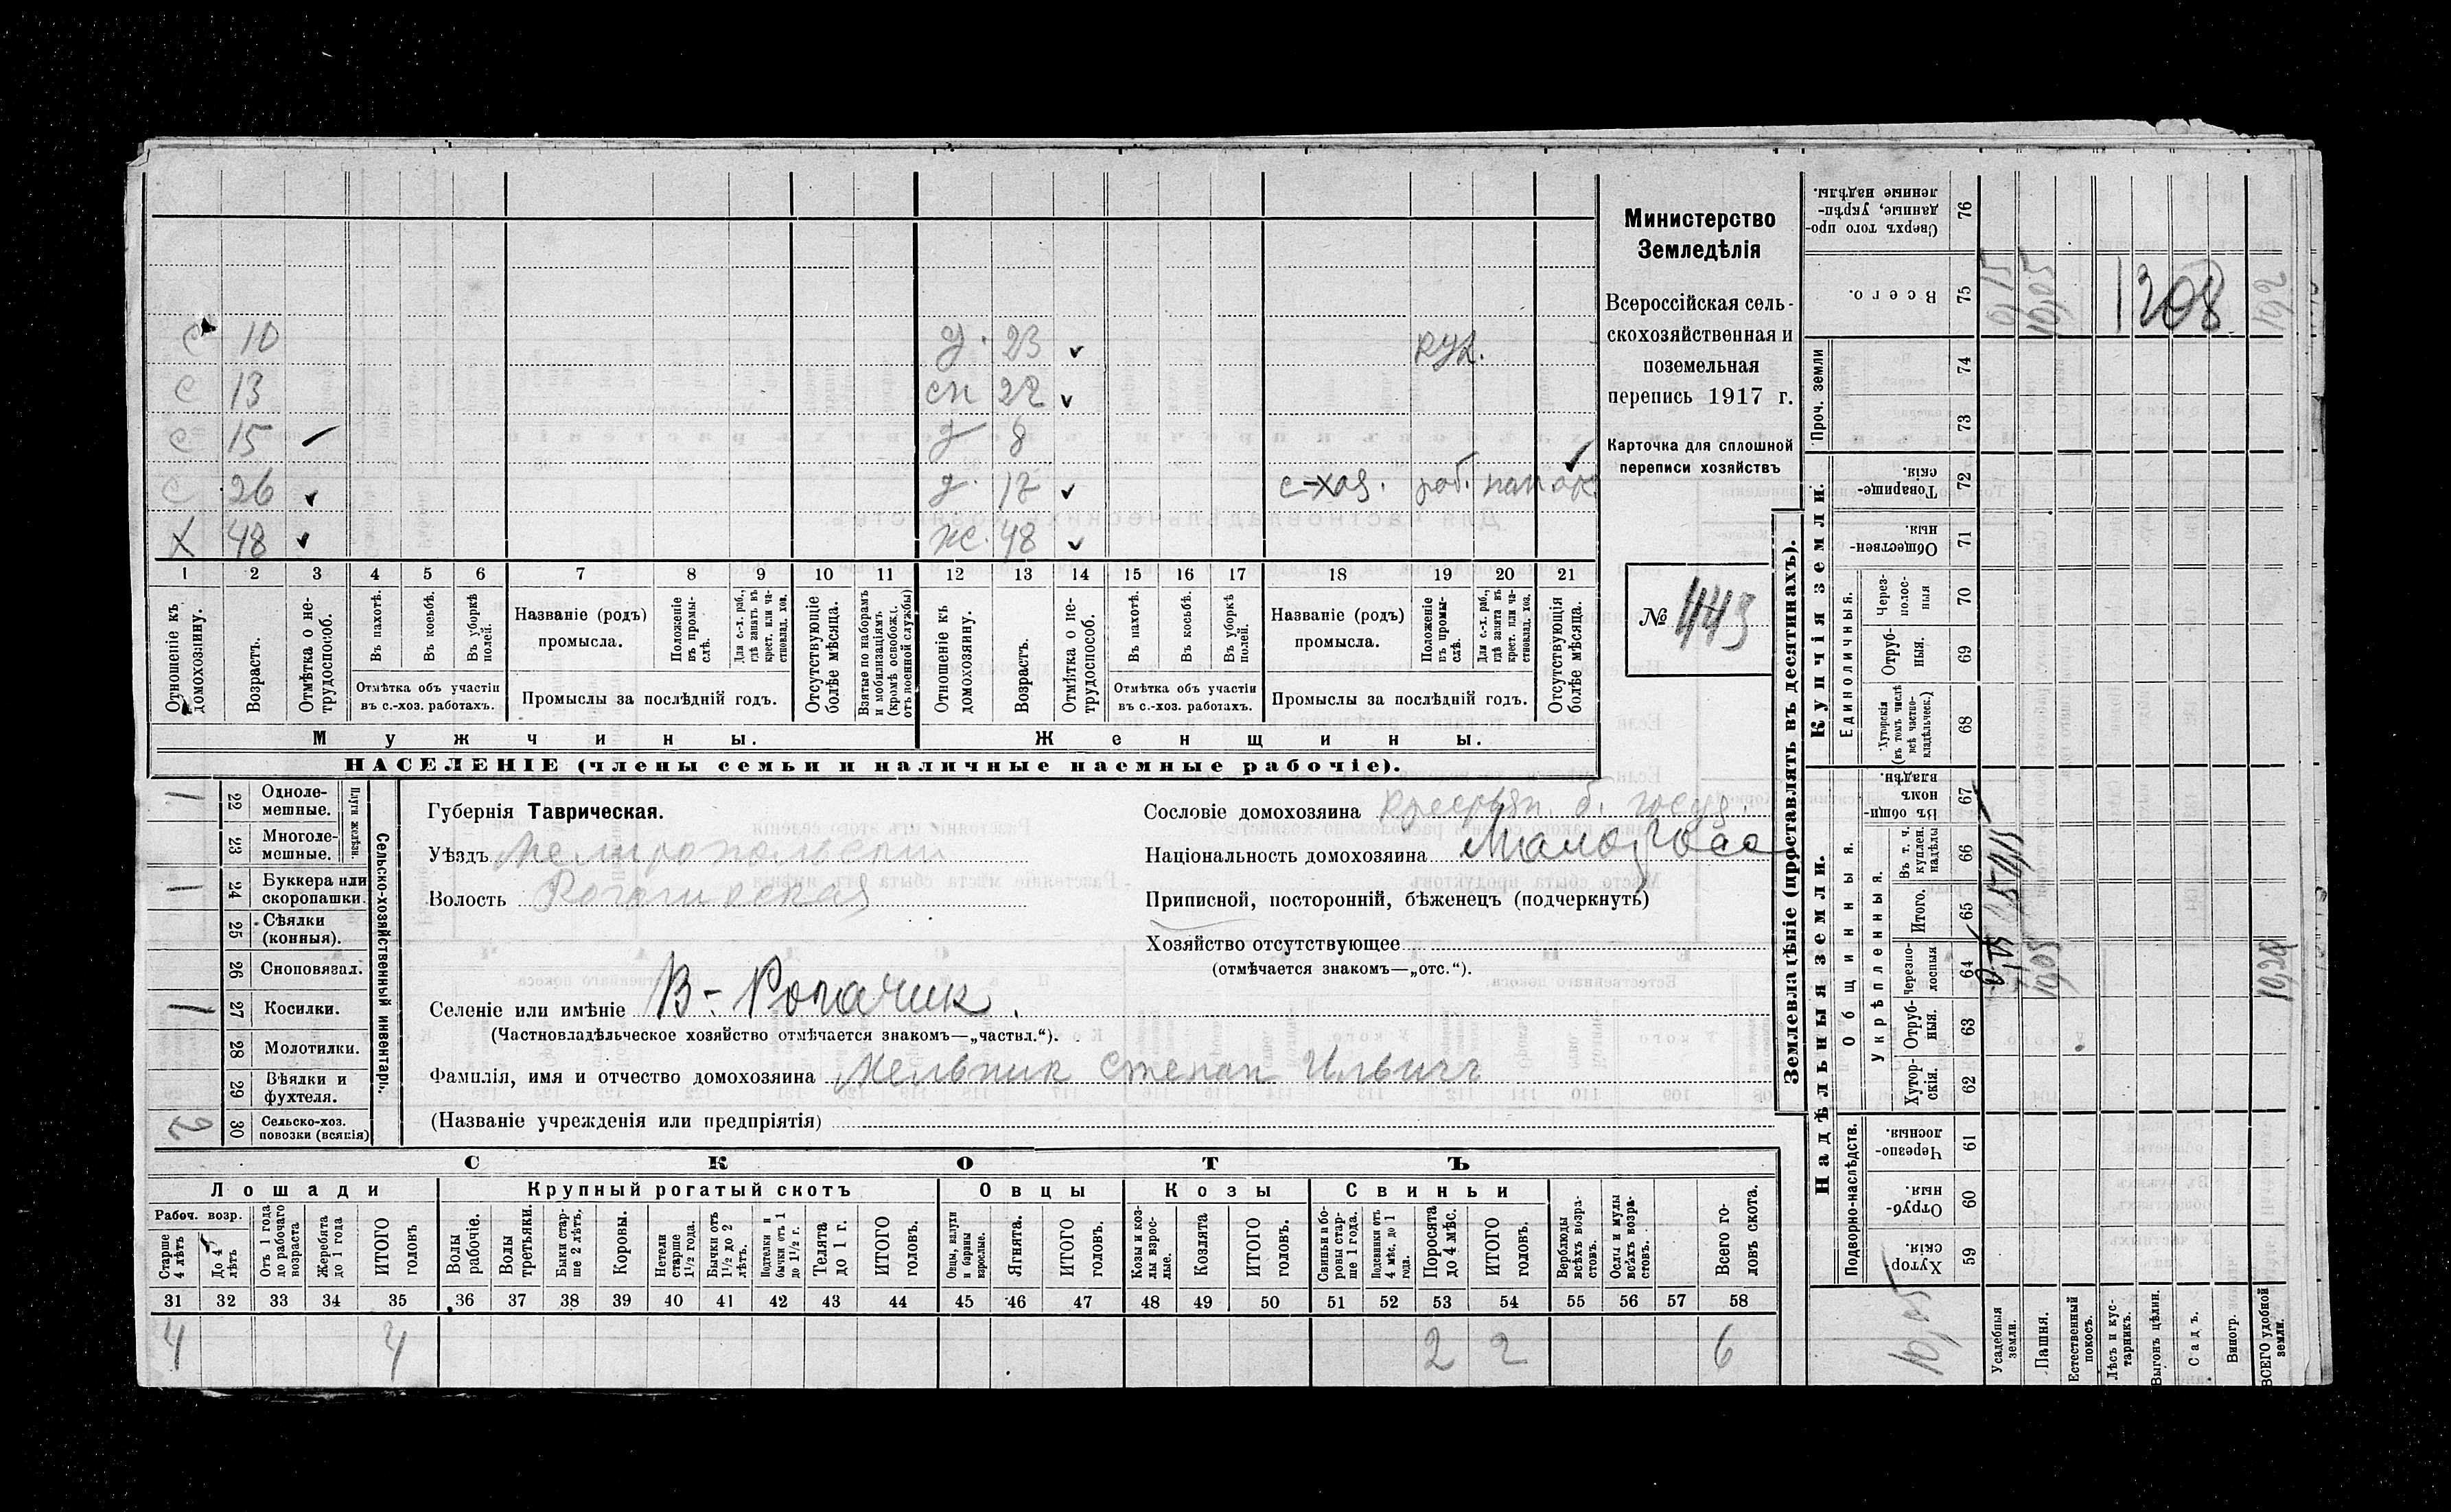 Министерство
Земледѣлія
Всероссійская сель-
скохозяйственная и
поземельная
перепись 1917 г.
Карточка для сплошной
переписи хозяйствъ
№ 443
с 10 д. 23 рук.
с 13 сн 22
с 15 д 8
с 26 д. 17 с-хоз. раб.
х 48 ж. 48
1 2 3 4 5 6 7 8 9 10 11 12 13 14 15 16 17 18 19 20 21
Отношеніе къ домохозяину.
Возрастъ.
Отмѣтка о не-трудоспособ.
Въ пахотѣ.
Въ косьбѣ.
Въ уборкѣ полей.
Отмѣтка объ участіи
въ с.-хоз. работахъ.
Названіе (родъ)
промысла.
Положеніе въ промы-слѣ.
Для с.-х. раб., гдѣ занятъ въ крест. или ча-стновлад. хоз.
Промыслы за послѣдній годъ.
Отсутствующіе болѣе мѣсяца.
Взятые по наборамъ и мобилизаціямъ (кромѣ освобожд. отъ военной службы)
Отношеніе къ домохозяину.
Возрастъ.
Отмѣтка о не-трудоспособ.
Въ пахотѣ.
Въ косьбѣ.
Въ уборкѣ полей.
Отмѣтка объ участіи
въ с.-хоз. работахъ.
Названіе (родъ)
промысла.
Положеніе въ промы-слѣ.
Для с.-х. раб., гдѣ занята въ крест. или ча-стновлад. хоз.
Промыслы за послѣдній годъ.
Отсутствующія болѣе мѣсяца.
Мужчины. Женщины.
НАСЕЛЕНІЕ (члены семьи и наличные наемные рабочіе).
Сельско-хозяйственный инвентарь.
Плуги желѣзн.
1 22 Одноле-мешные.
23 Многоле-мешные.
1 24 Буккера или скоропашки.
25 Сѣялки (конныя).
26 Сноповязал.
1 27 Косилки.
28 Молотилки.
29 Вѣялки и фухтеля.
2 30 Сельско-хоз. повозки (всякія)
Губернія Таврическая.
Уѣздъ Мелитопольский
Волость Рогачикская
Селеніе или имѣніе В-Рогачик.
(Частновладѣльческое хозяйство отмѣчается знакомъ—„частвл.“).
Фамилія, имя и отчество домохозяина Мельник Степан Ильичъ
(Названіе учрежденія или предпріятія)
Сословіе домохозяина Крестьян. б. госуд.
Національность домохозяина Малоросс
Приписной, посторонній, бѣженецъ (подчеркнуть)
Хозяйство отсутствующее
(отмѣчается знакомъ—„отс.“).
СКОТЪ
Лошади Крупный рогатый скотъ Овцы Козы Свиньи
Рабоч. возр.
Старше 4 лѣтъ
До 4 лѣтъ
Отъ 1 года до рабочаго возраста
Жеребята до 1 года
ИТОГО головъ
Волы рабочіе.
Волы третьяки.
Быки стар-ше 2 лѣтъ.
Коровы.
Нетели старше 1½ года.
Бычки отъ 1½ до 2 лѣтъ.
Подтелки и бычки отъ 1 до 1½ г.
Телята до 1 г.
ИТОГО головъ.
Овцы, валухи и бараны взрослые.
Ягнята.
ИТОГО головъ.
Козы и коз-лы взрос-лые.
Козлята
ИТОГО головъ.
Свиньи и бо-ровы стар-ше 1 года.
Подсвинки отъ 4 мѣс. до 1 года.
Поросята до 4 мѣс.
ИТОГО головъ.
Верблюды всѣхъ возра-стовъ.
Ослы и мулы всѣхъ возра-стовъ.
Всего го-ловъ скота.
31 32 33 34 35 36 37 38 39 40 41 42 43 44 45 46 47 48 49 50 51 52 53 54 55 56 57 58
4 4 2 2 6
Землевладѣніе (проставлять въ десятинахъ).
Купчія земли.
Надѣльныя земли.
Сверхъ того про-данные, укрѣп-ленные надѣлы. 76
Всего. 75
1208
Проч. земли
74
73
Товарище-скія. 72
Обществен-ныя. 71
Единоличныя.
Через-полос-ныя 70
Отруб-ныя. 69
Хуторскія (въ томъ числѣ всѣ частно-владѣльческ.) 68
Общинныя.
Въ общи-номъ владѣн. 67
Укрѣпленныя.
Въ т. ч. куплен. надѣлы 66
Итого. 65
Черезпо-лосныя 64
Отруб-ныя. 63
Хутор-скія. 62
Подворно-наслѣдств.
Черезпо-лосныя. 61
Отруб-ныя. 60
Хутор-скія. 59
Усадебныя земли.
Пашня.
Естественный покосъ.
Лѣсъ и кус-тарникъ.
Выгонъ цѣлин.
Садъ.
Виногр.
ВСЕГО удобной земли.
10,05